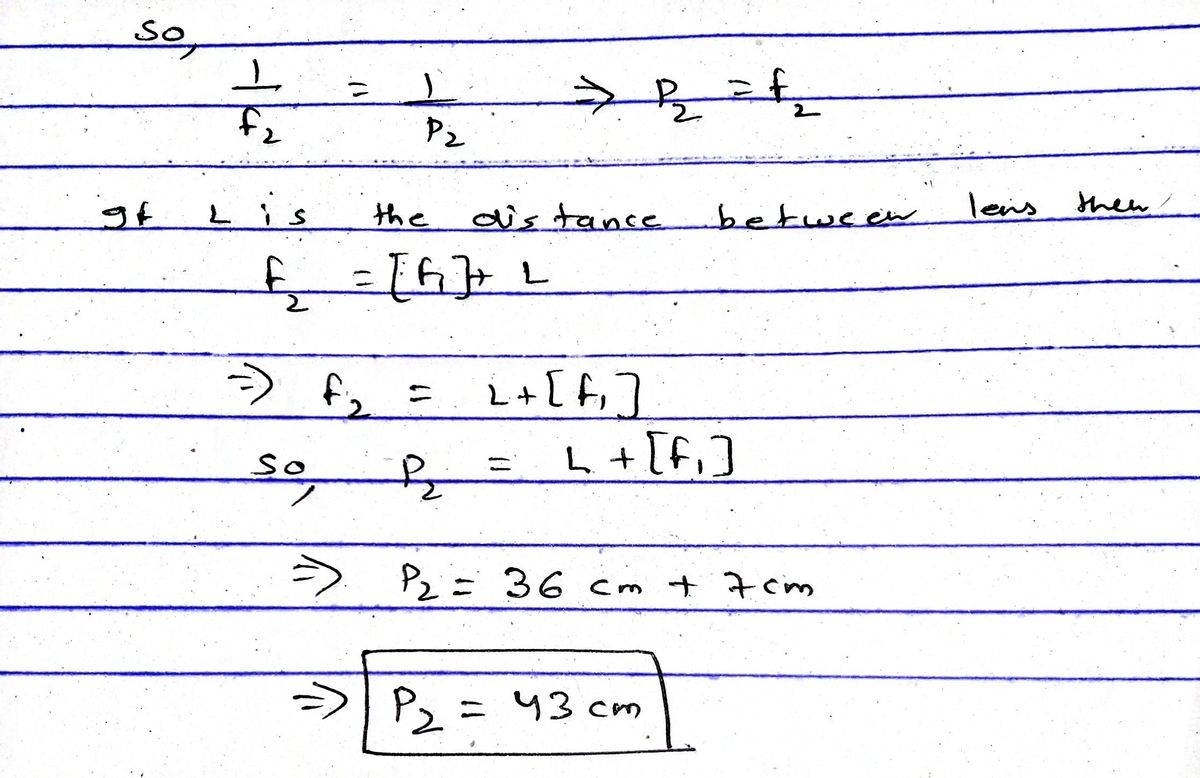 so,
1/f₂ = 1/P₂ ⇒ P₂ = f₂
If L is the distance between lens then
f₂ = [f₁] + L
⇒ f₂ = L + [f₁]
so, P₂ = L + [f₁]
⇒ P₂ = 36 cm + 7 cm
⇒ P₂ = 43 cm